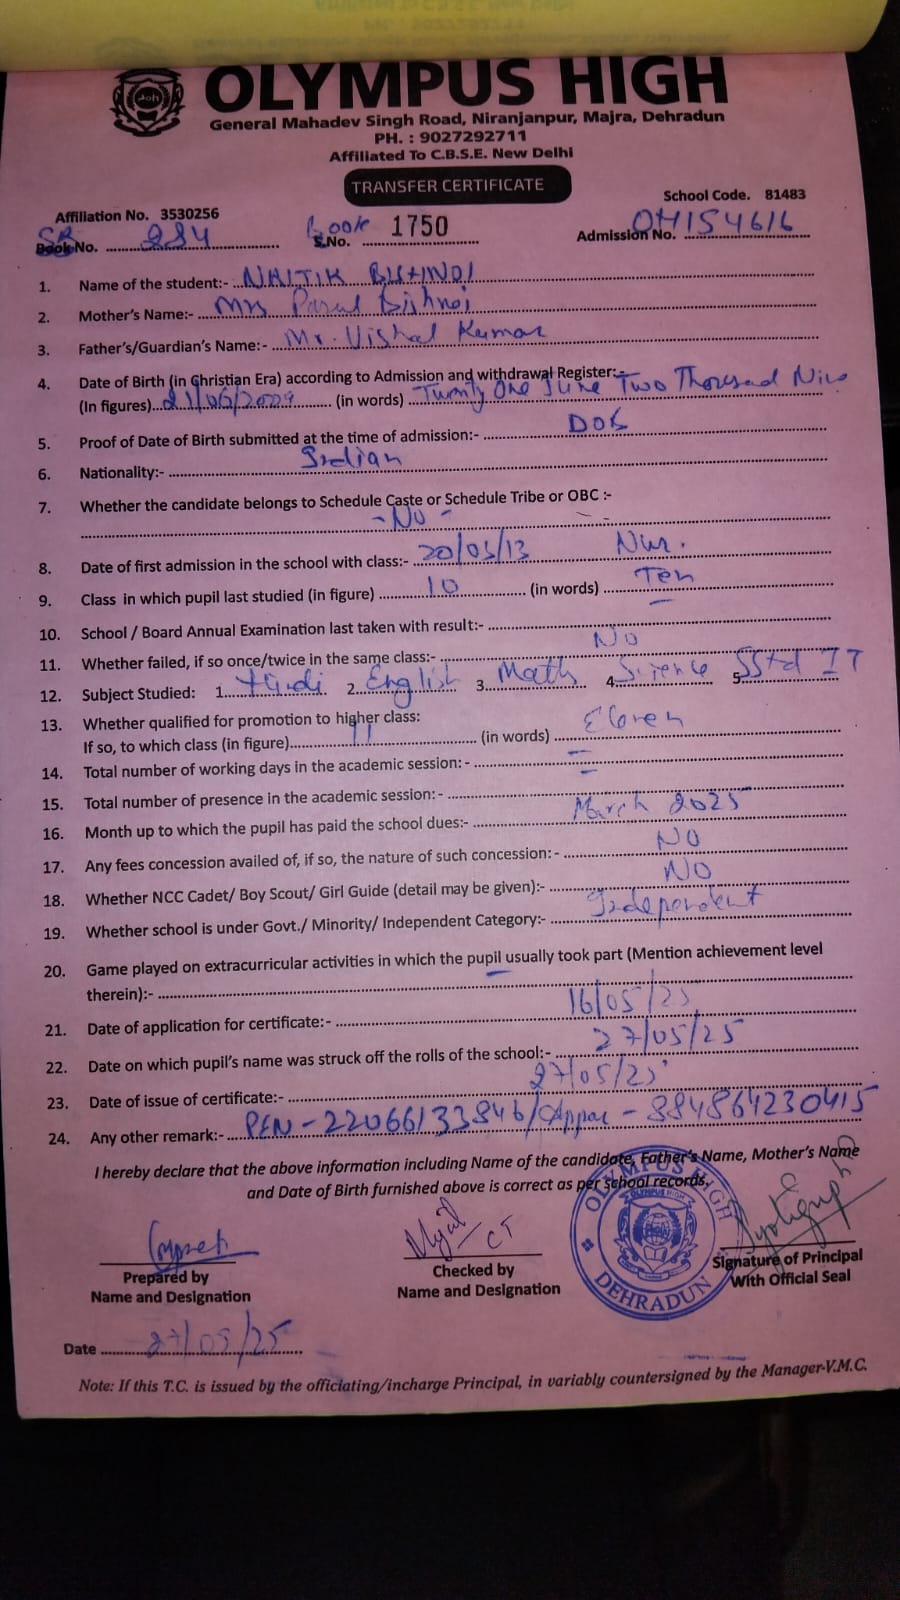 OLYMPUS HIGH
General Mahadev Singh Road, Niranjanpur, Majra, Dehradun
PH. : 9027292711
Affiliated To C.B.S.E. New Delhi
TRANSFER CERTIFICATE
School Code. 81483
Affiliation No. 3530256
SR Book No. 284 Book S.No. 1750 Admission No. OH154616
1. Name of the student:- NAITIK BISHNOI
2. Mother's Name:- Mrs Parul Bishnoi
3. Father's/Guardian's Name:- Mr. Vishal Kumar
4. Date of Birth (in Christian Era) according to Admission and withdrawal Register:-
(In figures) 21/06/2009 (in words) Twenty One June Two Thousand Nine
5. Proof of Date of Birth submitted at the time of admission:- DOB
6. Nationality:- Indian
7. Whether the candidate belongs to Schedule Caste or Schedule Tribe or OBC :-
- No -
8. Date of first admission in the school with class:- 20/03/13 Nur.
9. Class in which pupil last studied (in figure) 10 (in words) Ten
10. School / Board Annual Examination last taken with result:- —
11. Whether failed, if so once/twice in the same class:- No
12. Subject Studied: 1. Hindi 2. English 3. Math 4. Science 5. SStd IT
13. Whether qualified for promotion to higher class:
If so, to which class (in figure) 11 (in words) Eleven
14. Total number of working days in the academic session: - —
15. Total number of presence in the academic session:- —
16. Month up to which the pupil has paid the school dues:- March 2025
17. Any fees concession availed of, if so, the nature of such concession: - NO
18. Whether NCC Cadet/ Boy Scout/ Girl Guide (detail may be given):- NO
19. Whether school is under Govt./ Minority/ Independent Category:- Independent
20. Game played on extracurricular activities in which the pupil usually took part (Mention achievement level
therein):- —
21. Date of application for certificate:- 16/05/25
22. Date on which pupil's name was struck off the rolls of the school:- 27/05/25
23. Date of issue of certificate:- 27/05/25
24. Any other remark:- PEN-22066133846/Appar - 884864230415
I hereby declare that the above information including Name of the candidate, Father's Name, Mother's Name
and Date of Birth furnished above is correct as per school records.
OLYMPUS HIGH
DEHRADUN
CT
Prepared by
Name and Designation
Checked by
Name and Designation
Signature of Principal
With Official Seal
Date 27/05/25
Note: If this T.C. is issued by the officiating/incharge Principal, in variably countersigned by the Manager-V.M.C.